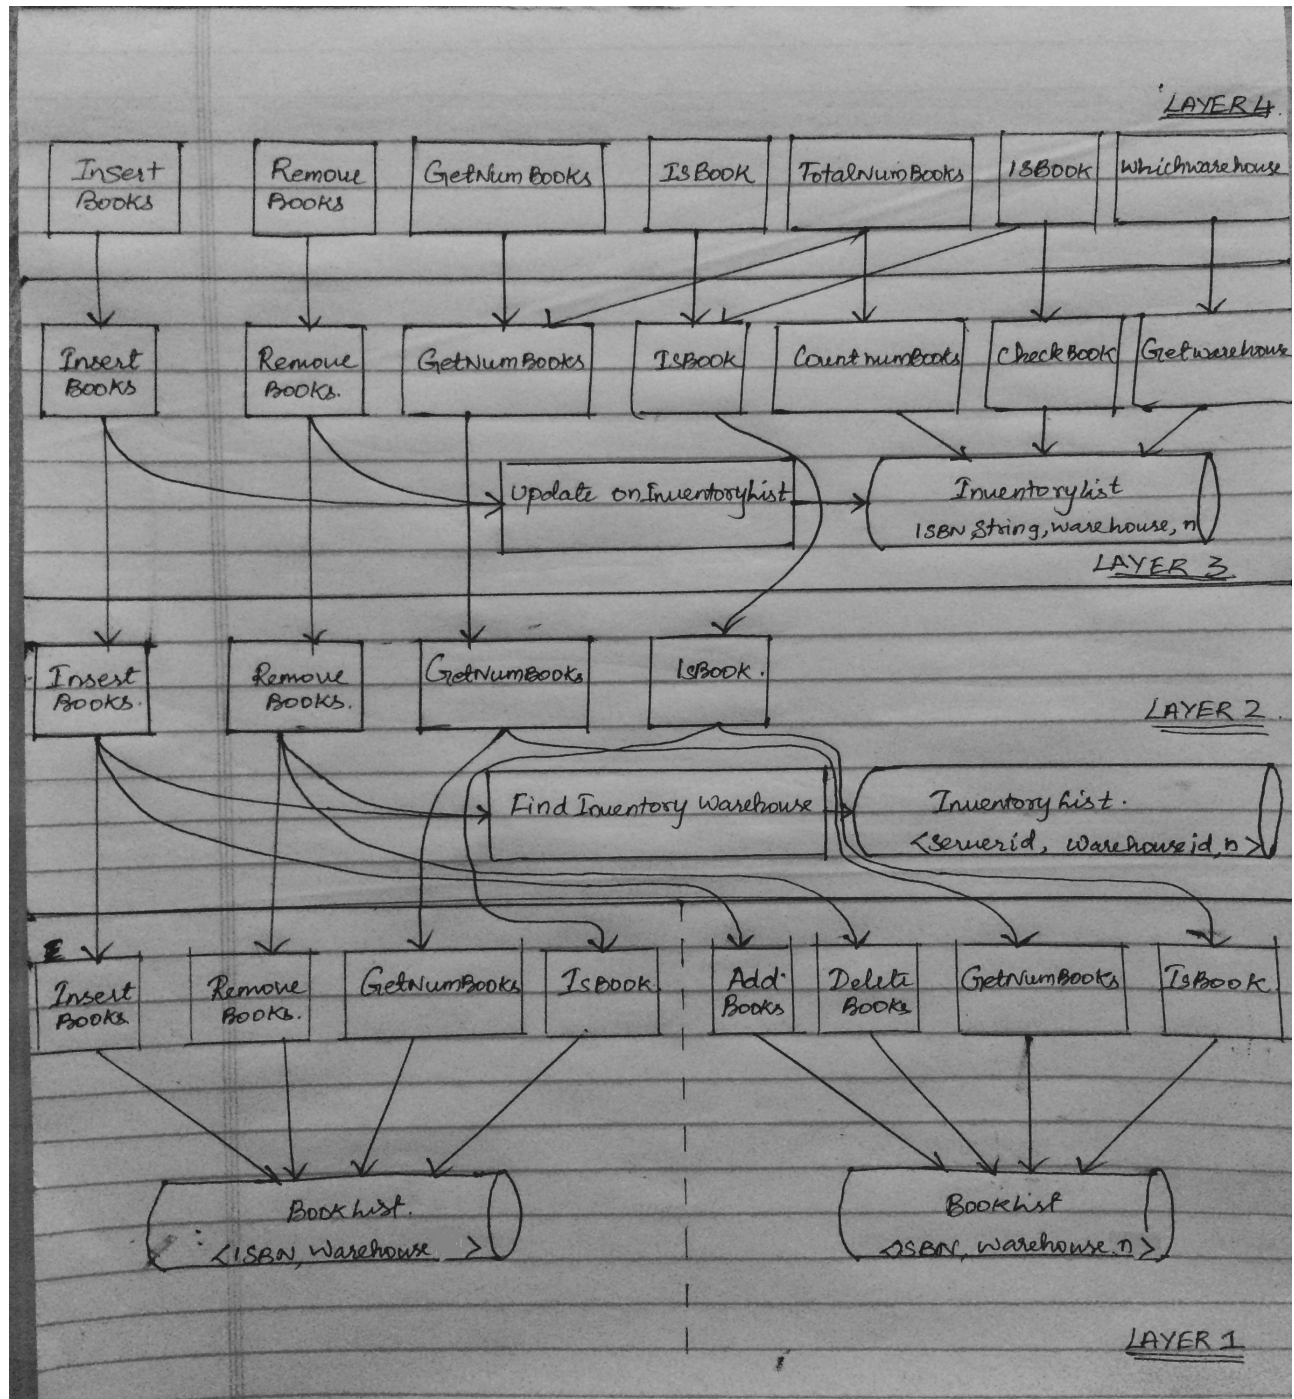 LAYER 4
Insert
Books
Remove
Books
GetNumBooks
IsBook
TotalNumBooks
ISBook
Whichwarehouse
Insert
Books
Remove
Books.
GetNumBooks
IsBook
CountnumBooks
CheckBook
Getwarehouse
Update on InventoryList
InventoryList
ISBN String, warehouse, n
LAYER 3
Insert
Books.
Remove
Books.
GetNumBooks
IsBook.
LAYER 2
Find Inventory Warehouse
Inventory List.
<serverid, warehouseid, n>
Insert
Books
Remove
Books.
GetNumBooks
IsBook
Add
Books
Delete
Books
GetNumBooks
IsBook
BookList.
<ISBN, Warehouse >
BookList
<ISBN, warehouse, n>
LAYER 1